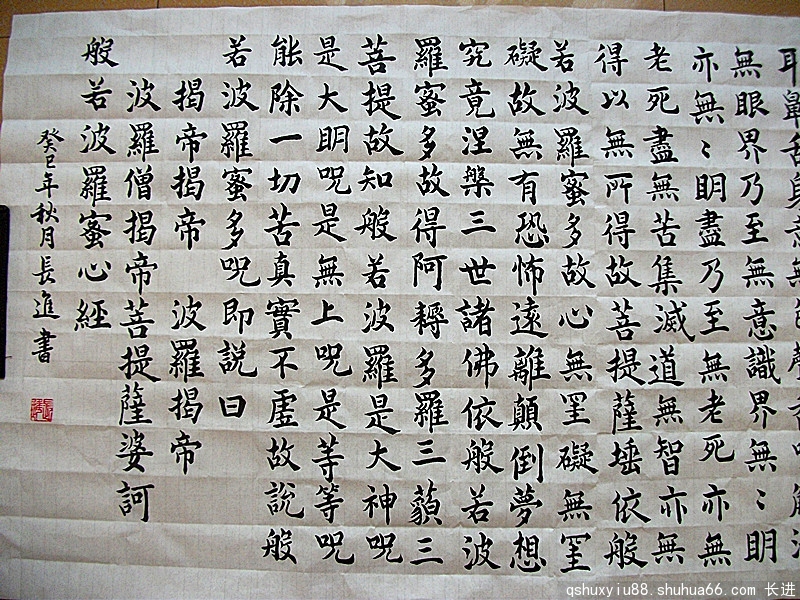 耳鼻舌身意無色聲香味
無眼界乃至無意識界無〻明
亦無〻明盡乃至無老死亦無
老死盡無苦集滅道無智亦無
得以無所得故菩提薩埵依般
若波羅蜜多故心無罣礙無罣
礙故無有恐怖遠離顛倒夢想
究竟涅槃三世諸佛依般若波
羅蜜多故得阿耨多羅三藐三
菩提故知般若波羅是大神呪
是大明呪是無上呪是等等呪
能除一切苦真實不虛故說般
若波羅蜜多呪即說曰
揭帝揭帝 波羅揭帝
波羅僧揭帝菩提薩婆訶
般若波羅蜜心經
癸巳年秋月長進書
qshuxyiu88.shuhua66.com 长进